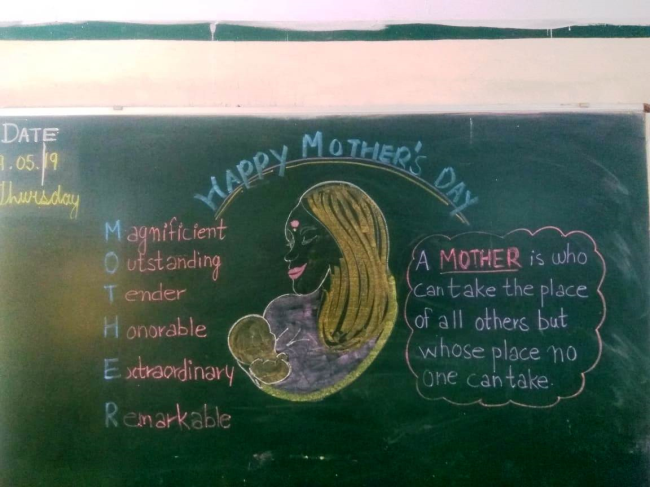 DATE
9.05.19
Thursday
HAPPY MOTHER'S DAY
Magnificient
Outstanding
Tender
Honorable
Extraordinary
Remarkable
A MOTHER is who
can take the place
of all others but
whose place no
one can take.